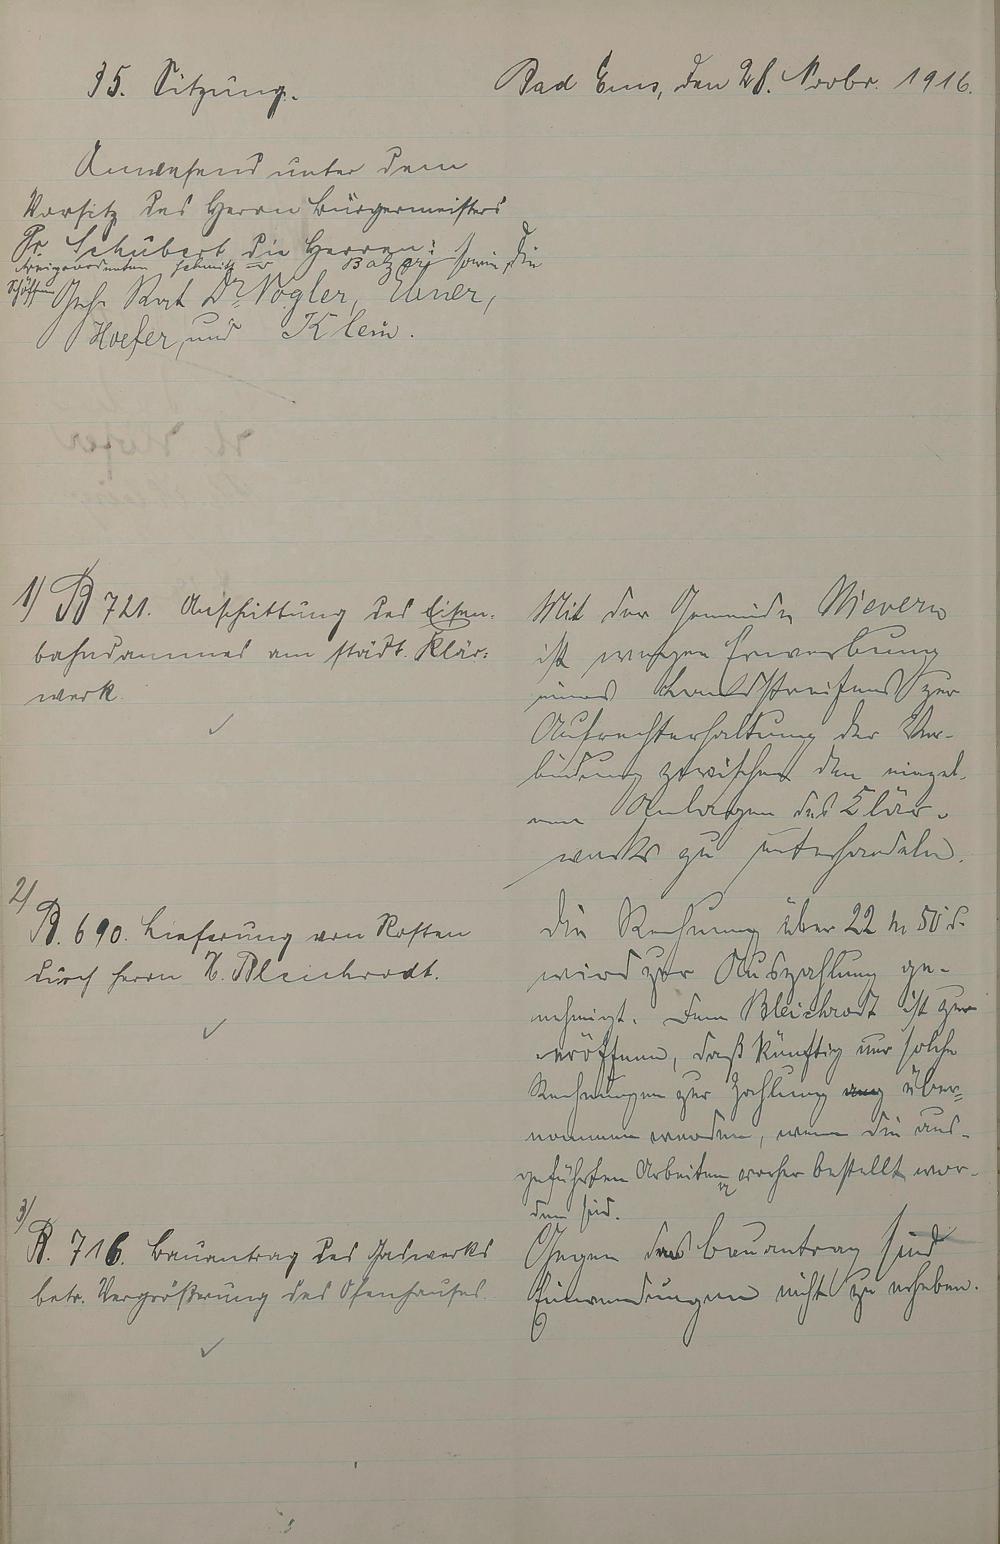 35. Sitzung.
Bad Ems, den 28. Novbr. 1916.
Anwesend unter dem
Vorsitz des Herrn Bürgermeisters
Dr. Schubert die Herren:
Schmitz Balzer sowie die
Schöffen Geh. Rat Dr. Vogler, Ebner,
Hoefer, und Klein.
1) B 721. Anschüttung des Eisen-
bahndammes am städt. Klär-
werk.
Mit der Gemeinde Nievern
ist wegen Erwerbung
eines Landstreifens zur
Aufrechterhaltung der Ver-
bindung zwischen den einzel-
nen Anlagen des Klär-
werks zu unterhandeln.
2)
B. 690. Lieferung von Rosten
durch Herrn H. Bleichrodt.
Die Rechnung über 22 M 50 d.
wird zur Auszahlung ge-
nehmigt. Dem Bleichrodt ist zu
eröffnen, daß künftig nur solche
Rechnungen zur Zahlung über-
nommen werden, wenn die aus-
geführten Arbeiten vorher bestellt wor-
den sind.
3)
B. 716. Bauantrag des Gaswerks
betr. Vergrößerung des Ofenhauses.
Gegen das Bauantrag sind
Einwendungen nicht zu erheben.